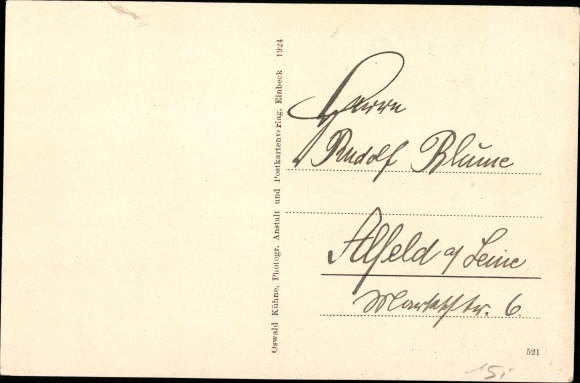 Oswald Kühne, Photogr. Anstalt und Postkartenverlag, Einbeck 1924
Herrn
Rudolf Blume
Alfeld a/ Leine
Marktstr. 6.
521
15.